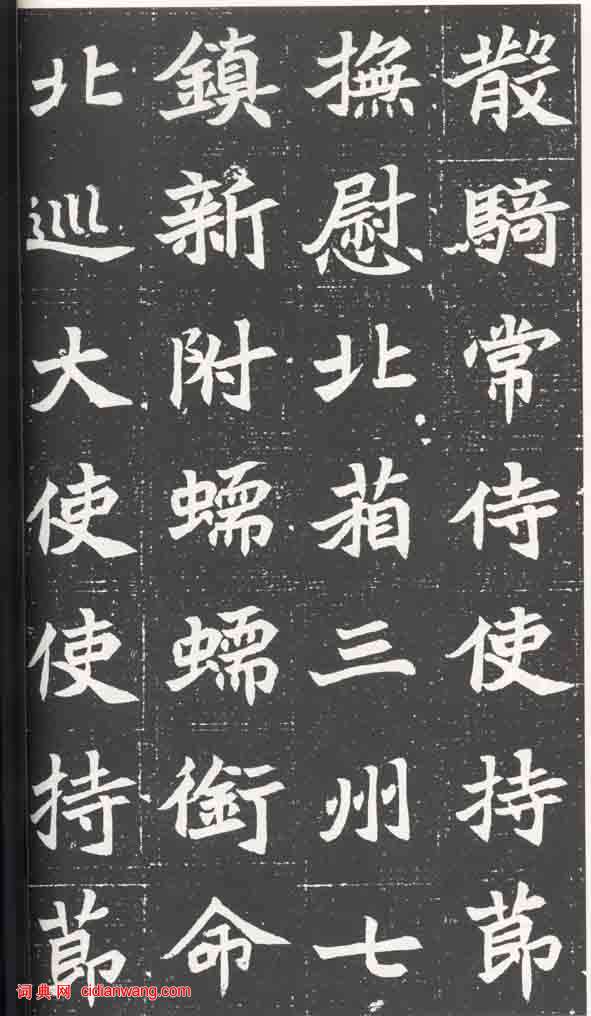 散騎常侍使持莭
撫慰北葙三州七
鎮新附蠕蠕銜命
北巡大使使持莭
词典网 cidianwang.com